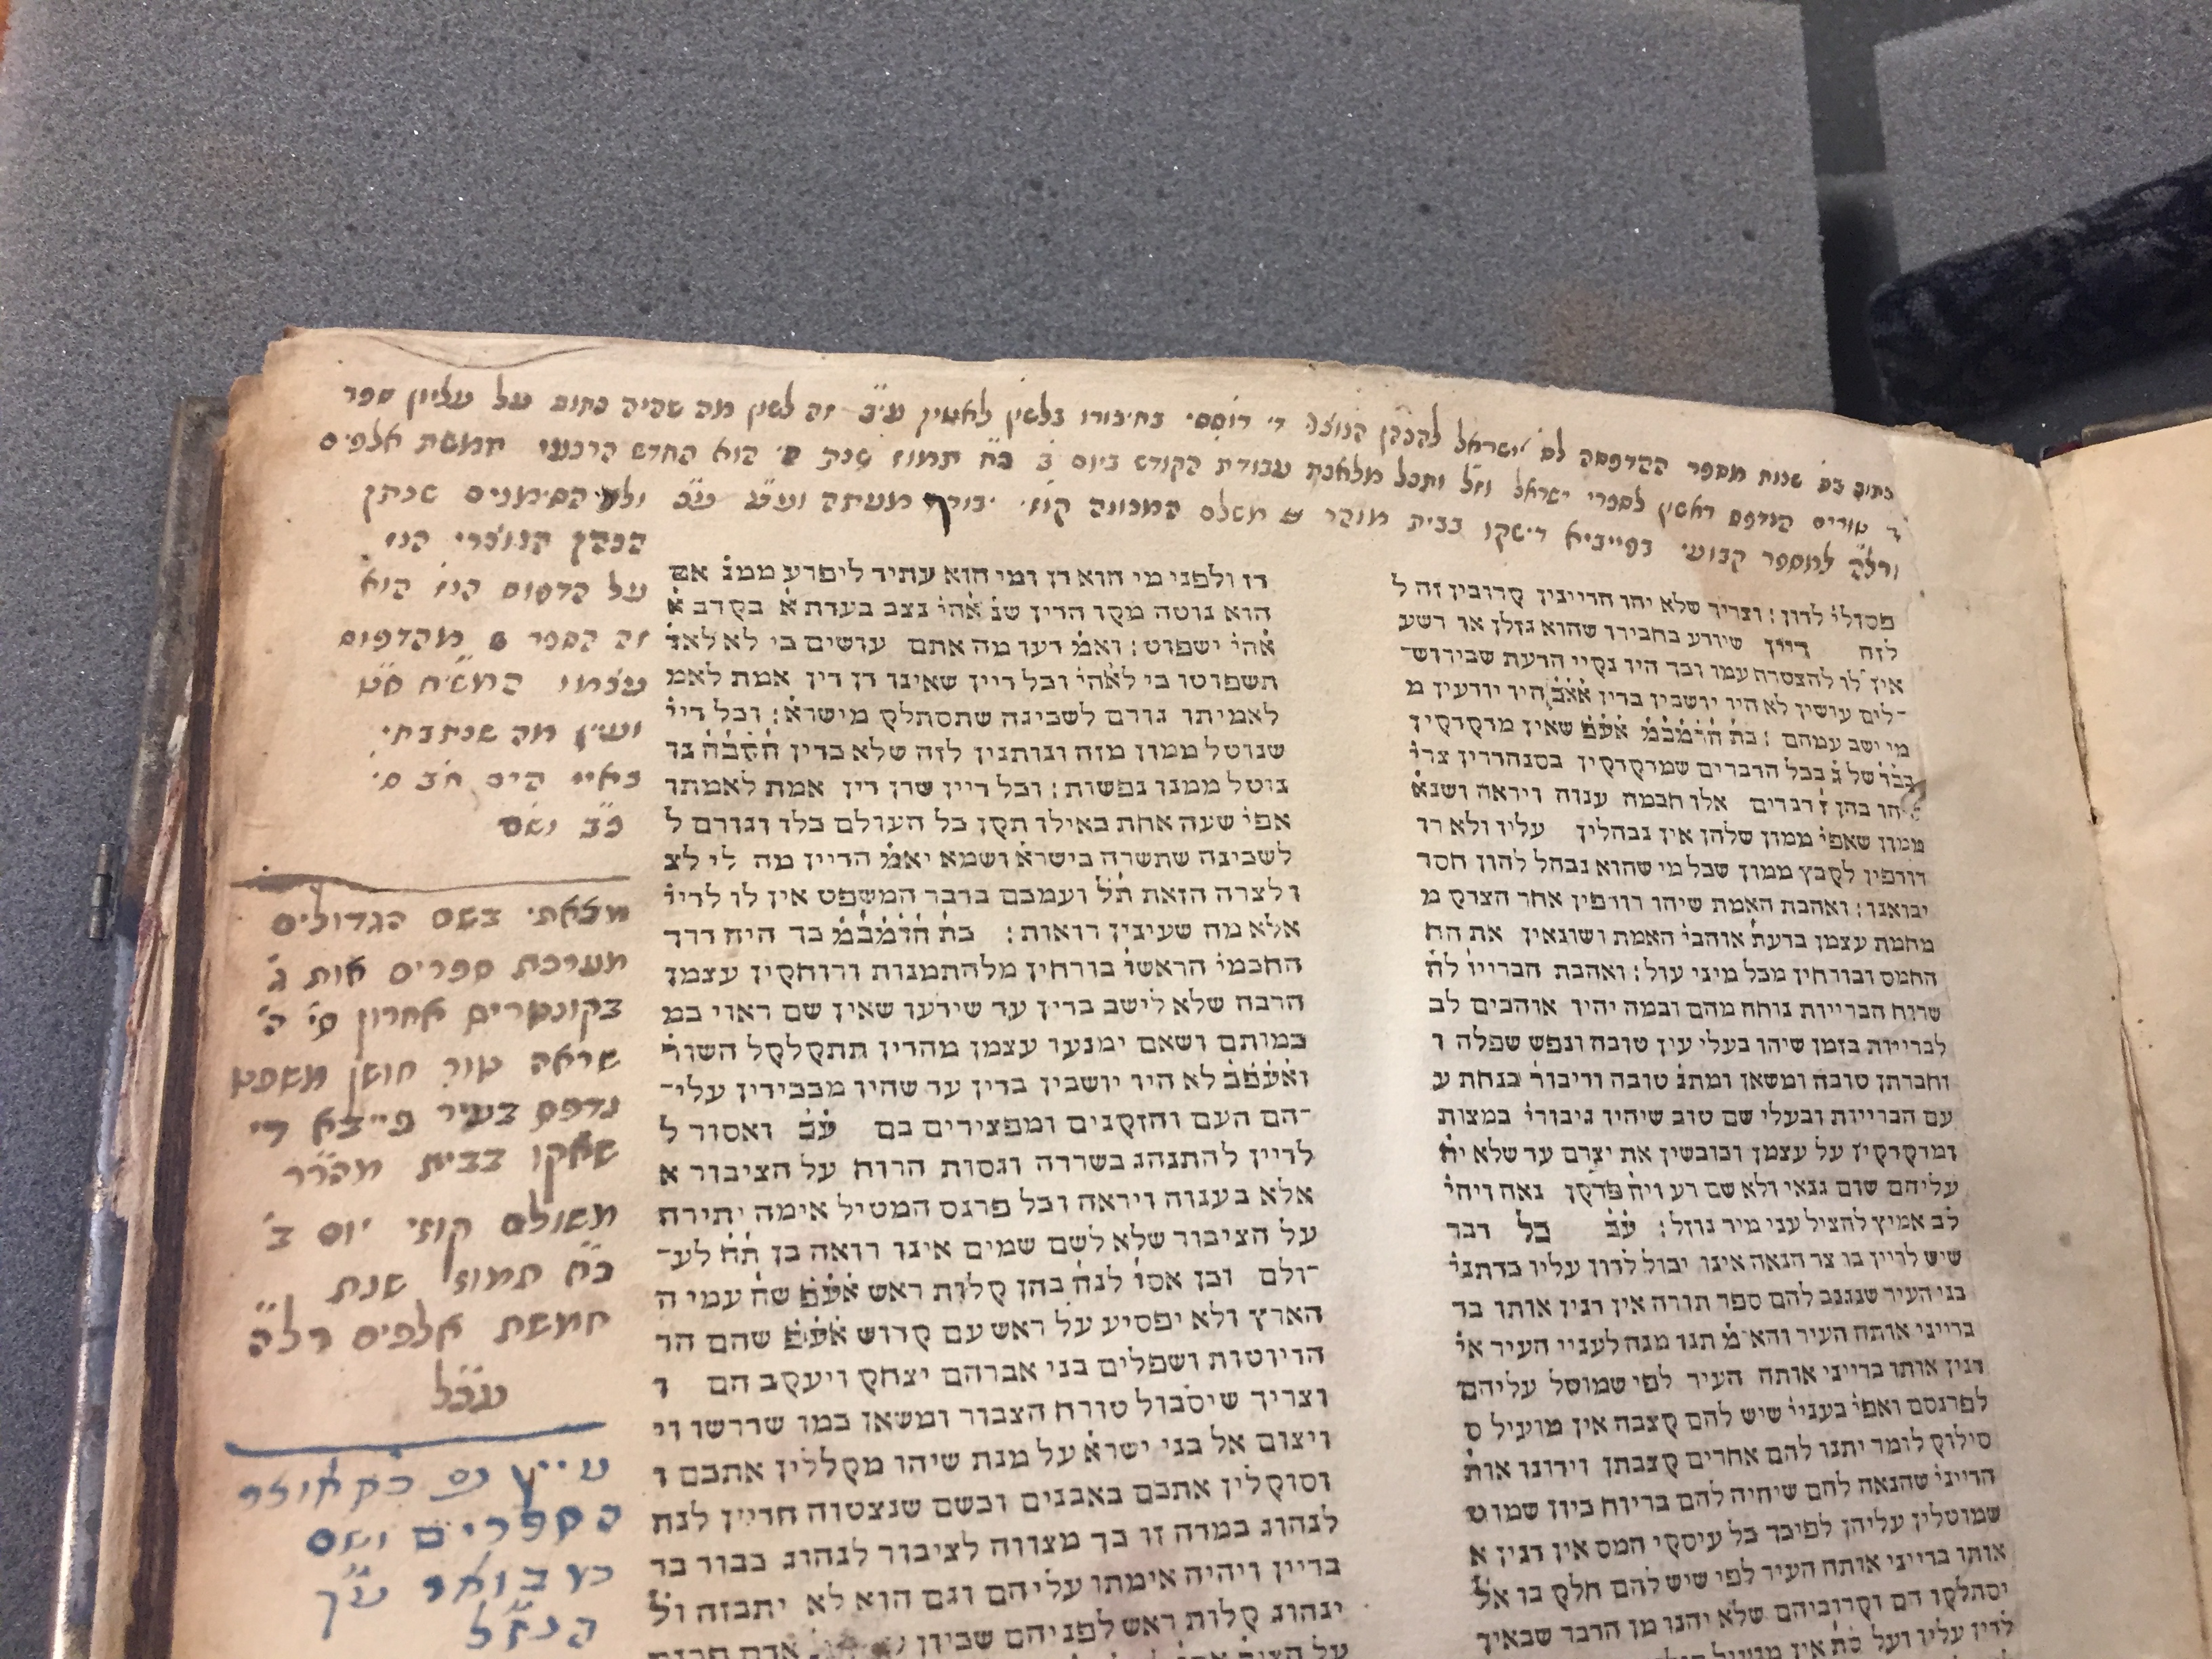 כתוב בס' שנות מספר ההדפסה לס' ישראל להכהן הנוצרי ד' רוססי בחיבורו בלשון לאטין ע"ב זה לשון מה שהיה כתוב על עליון ספר
ד' טורים הנדפס ראשון לספרי ישראל וז"ל ותכל מלאכת עבודת הקודש ביום ב' כ"ח תמוז שנת הוא החדש הרביעי חמשת אלפים
ורל"ה למספר קבועי בפייביא דישקו בבית מוהר משלם המכונה קוזי יבורך מעתה וע"ע עכ"ל
הסימנים שכתן
הכהן הנוצרי הנז'
על הדפוס הנז' הוא
זה הספר מהדפוס
עצמו
ועיין מה שכתבתי
כ"ב ושם
מצאתי בשם הגדולים
מערכת ספרים אות ג'
בקונטרים אחרון סי' ה'
שראה טור חושן משפט
נדפס בעיר פייבא די
שאקו בבית מהר"ר
משולם קוזי יום ב'
כ"ח תמוז שנת
חמשת אלפים רל"ה
עכ"ל
עיין גם
הספרים ושם
הנז"ל
פסולי' לדון : וצריך שלא יהו הדיינין קרובין זה ל
לזה דיין שיודע בחבירו שהוא גזלן או רשע
אין לו להצטרף עמו וכך היו נקיי הדעת שבירוש־
־לים עושין לא היו יושבין בדין אאב היו יודעין מ
מי ישב עמהם : כת הרמבם אעפ שאין מדקדקין
בבד של ג' בכל הדברים שמדקדקין בסנהדרין צרי'
שיהו בהן ז דברים אלו חכמה ענוה ויראה ושנא
ממון שאפי' ממון שלהן אין נבהלין עליו ולא רו
רודפין לקבץ ממון שכל מי שהוא נבהל להון חסר
יבואנו : ואהבת האמת שיהו רודפין אחר הצדק מ
מחמת עצמן בדעת' אוהבי' האמת ושונאין את הח
החמס ובורחין מכל מיני עול : ואהבת הברייו' לה
שרוח הבריות נוחה מהם ובמה יהיו אוהבים לב
לבריות בזמן שיהו בעלי עין טובה ונפש שפלה ו
וחברתן טובה ומשאן ומתנ' טובה ודיבור' בנחת ע
עם הבריות ובעלי שם טוב שיהיו גיבורי' במצות
ומדקדקין על עצמן וכובשין את יצרם עד שלא יה
עליהם שום גנאי ולא שם רע ויה פרקן נאה ויהי'
לב אמיץ להציל עני מיד גוזל : עכ כל דבר
שיש לדיין בו צד הנאה אינו יכול לדון עליו כדתני'
בני העיר שנגנב להם ספר תורה אין דנין אותו בד
בדייני אותה העיר והאמ תנו מנה לעניי העיר אי'
דנין אותו בדייני אותה העיר לפי שמוטל עליהם
לפרנסם ואפי' בעניי' שיש להם קצבה אין מועיל ס
סילוק לומר יתנו להם אחרים קצבתן וידונו אות'
הדייני' שהנאה להם שיהיה להם בריוח כיון שמוט
שמוטלין עליהן לפיכך כל עיסקי המס אין דנין א
אותו בדייני אותה העיר לפי שיש להם חלק בו אל
יסתלקו הם וקרוביהם שלא יהנו מן הדבר שבאין
לדין עליו ועל
דן ולפני מי הוא דן ומי הוא עתיד ליפרע ממנ' אם
הוא נוטה מקו הדין שנ אהי' נצב בעדת א' בקרב א'
אהי' ישפוט : ואמ דעו מה אתם עושים כי לא לאד
תשפוטו כי לאהי' וכל דיין שאינו דן דין אמת לאמ
לאמיתו גורם לשכינה שתסתלק מישרא' : וכל דיי'
שנוטל ממון מזה ונותנין לזה שלא כדין הקבה גו
נוטל ממנו נפשות : וכל דיין שדן דין אמת לאמתו
אפי' שעה אחת כאילו תקן כל העולם כלו וגורם ל
לשכינה שתשרה בישרא' ושמא יאמ' הדיין מה לי לצ
ולצרה הזאת תל ועמכם בדבר המשפט אין לו לדיי'
אלא מה שעיניו רואות : כת הרמבם כך היה דרך
החכמי' הראשו' בורחין מלהתמנות ודוחקין עצמן
הרבה שלא לישב בדין עד שידעו שאין שם ראוי כמ
כמותם ושאם ימנעו עצמן מהדין תתקלקל השור'
ואעפכ לא היו יושבין בדין עד שהיו מכבידין עלי־
־הם העם והזקנים ומפצירים בם עכ ואסור ל
לדיין להתנהג בשררה וגסות הרוח על הציבור א
אלא בענוה ויראה וכל פרנס המטיל אימה יתירה
על הציבור שלא לשם שמים אינו רואה בן תח לע־
־ולם וכן אסו' לנה' בהן קלות ראש אעפ שה עמי ה
הארץ ולא יפסיע על ראש עם קדוש אעפ שהם הד
הדיוטות ושפלים בני אברהם יצחק ויעקב הם ו
וצריך שיסבול טורח הצבור ומשאן כמו שדרשו וי
ויצום אל בני ישרא' על מנת שיהו מקללין אתכם ו
וסוקלין אתכם באבנים וכשם שנצטוה הדיין לנה
לנהוג במדה זו כך מצווה לציבור לנהוג כבוד בד
בדיין ויהיה אימתו עליהם וגם הוא לא יתבזה ול'
ינהוג קלות ראש לפניהם שכיון